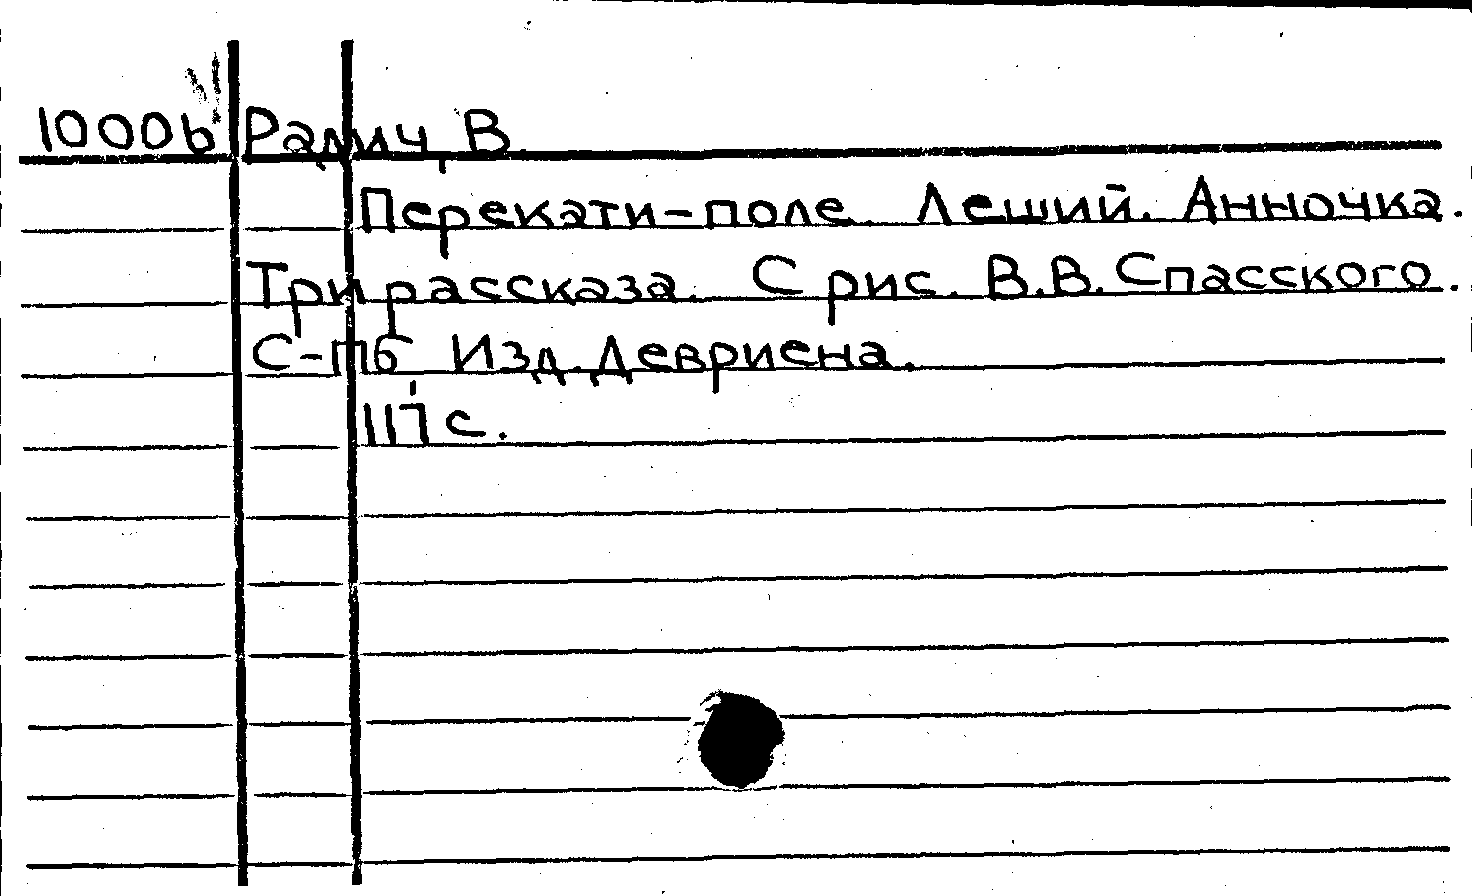 1000b Радич, В.
Перекати-поле. Леший. Анночка.
Три рассказа. С рис. В.В. Спасского.
С-Пб, Изд. Девриена.
117 с.